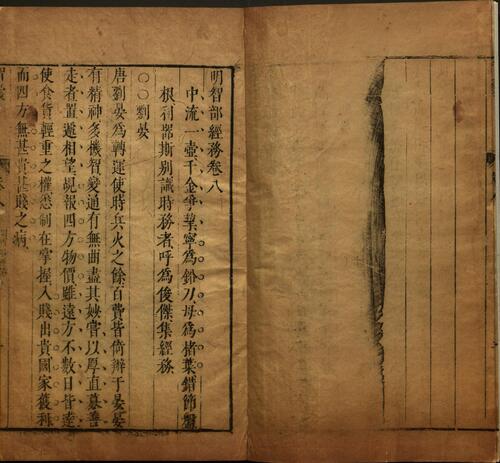 明智部經務卷八
中流一壺千金爭挈寧為鉛刀毋為楮葉錯節盤
根利器斯別識時務者呼為俊傑集經務
○○劉晏
唐劉晏為轉運使時兵火之餘百費皆倚辦于晏晏
有精神多機智變通有無曲盡其妙嘗以厚直募善
走者置遞相望覘報四方物價雖遠方不數日皆達
使食貨輕重之權悉制在掌握入賤出貴國家獲利
而四方無甚貴甚賤之病